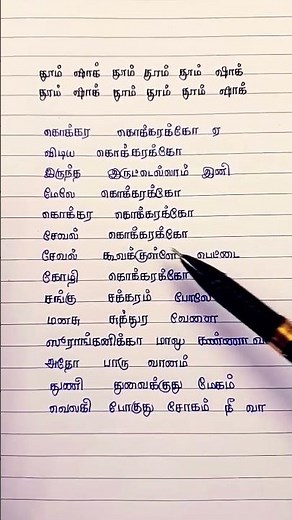 தூம் ஷாக் தூம் தூம் தூம் ஷாக்
தூம் ஷாக் தூம் தூம் தூம் ஷாக்
கொக்கர கொக்கரக்கோ ஏ
விடிய கொக்கரக்கோ
இருந்த இருட்டெல்லாம் இனி
மேலே கொக்கரக்கோ
கொக்கர கொக்கரக்கோ
சேவல் கொக்கரக்கோ
சேவல் கூவக்குள்ளே பெட்டை
கோழி கொக்கரக்கோ
சங்கு சக்கரம் போலே
மனசு சுத்துர வேளை
ஸூராங்கனிக்கா மாலு கண்ணா வா
அதோ பாரு வானம்
துணி துவைக்குது மேகம்
வெலகி போகுது சோகம் நீ வா